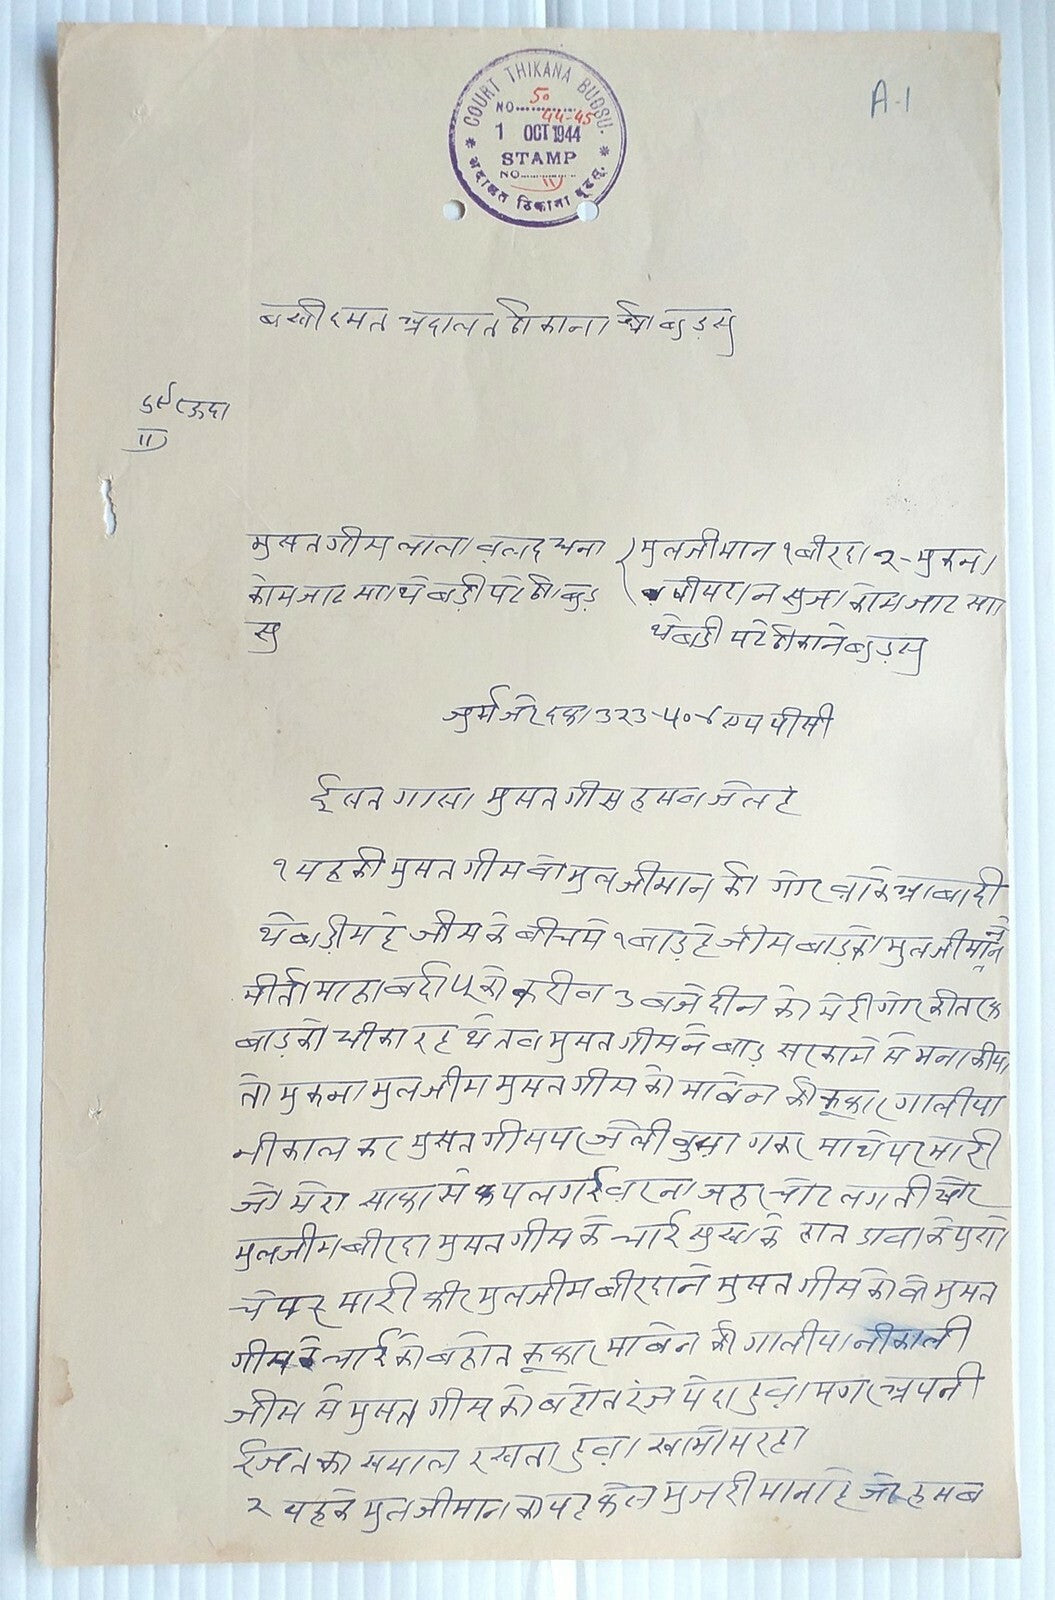 COURT THIKANA BUDSU.
NO. 50
44-45
1 OCT 1944
STAMP
NO. 11
अदालत ठिकाना बूडसू.
A-1
बखीदमत अदालत ठीकाना श्री बुड़सु
11
मुसतगीस लाला वल्द
कोम जाट सा। थेबड़ी पटे ठी। बुड़
सु
मुलजीमान १ बीरदा २- मुकना
पीसरान सुजा कोम जाट सा।
थेबड़ी पटे ठीकाने बुड़सु
जुर्म जेर दफा ३२३-५०४ एम पी सी
ईसतगासा मुसतगीस हसब जेल हे
१ यह की मुसतगीस वो मुलजीमान की गोर वाके आबादी
थेबड़ी मे हे जीस के बीच मे १ बाड़ हे जीस बाड़ को मुलजीमान ने
मीती माहा बदी ५ को करीब ३ बजे दीन को मेरी गोर की तरफ
बाड़ को रहे थे तब मुसतगीस ने बाड़ सरकाने से मना कीया
तो मुकना मुलजीम मुसतगीस को माबेन की फूकार गालीया
नीकाल कर मुसतगीस पर जेली माथे पर मारी
जो मेरा साफा से गई वरना जरुर चोट लगती ओर
मुलजीम बीरदा मुसतगीस के भाई सुखा के हात
मारी फीर मुलजीम बीरदा ने मुसतगीस को वो मुसत
गीस के भाई को बहोत फूकार माबेन की गालीया नीकाली
जीस से मुसतगीस को बहोत रंज पेदा हुवा मगर अपनी
ईजत का खयाल रखता हुवा खामोस रहा
२ यह के मुलजीमान का यह फेल मुजरीमाना हे जो हसब